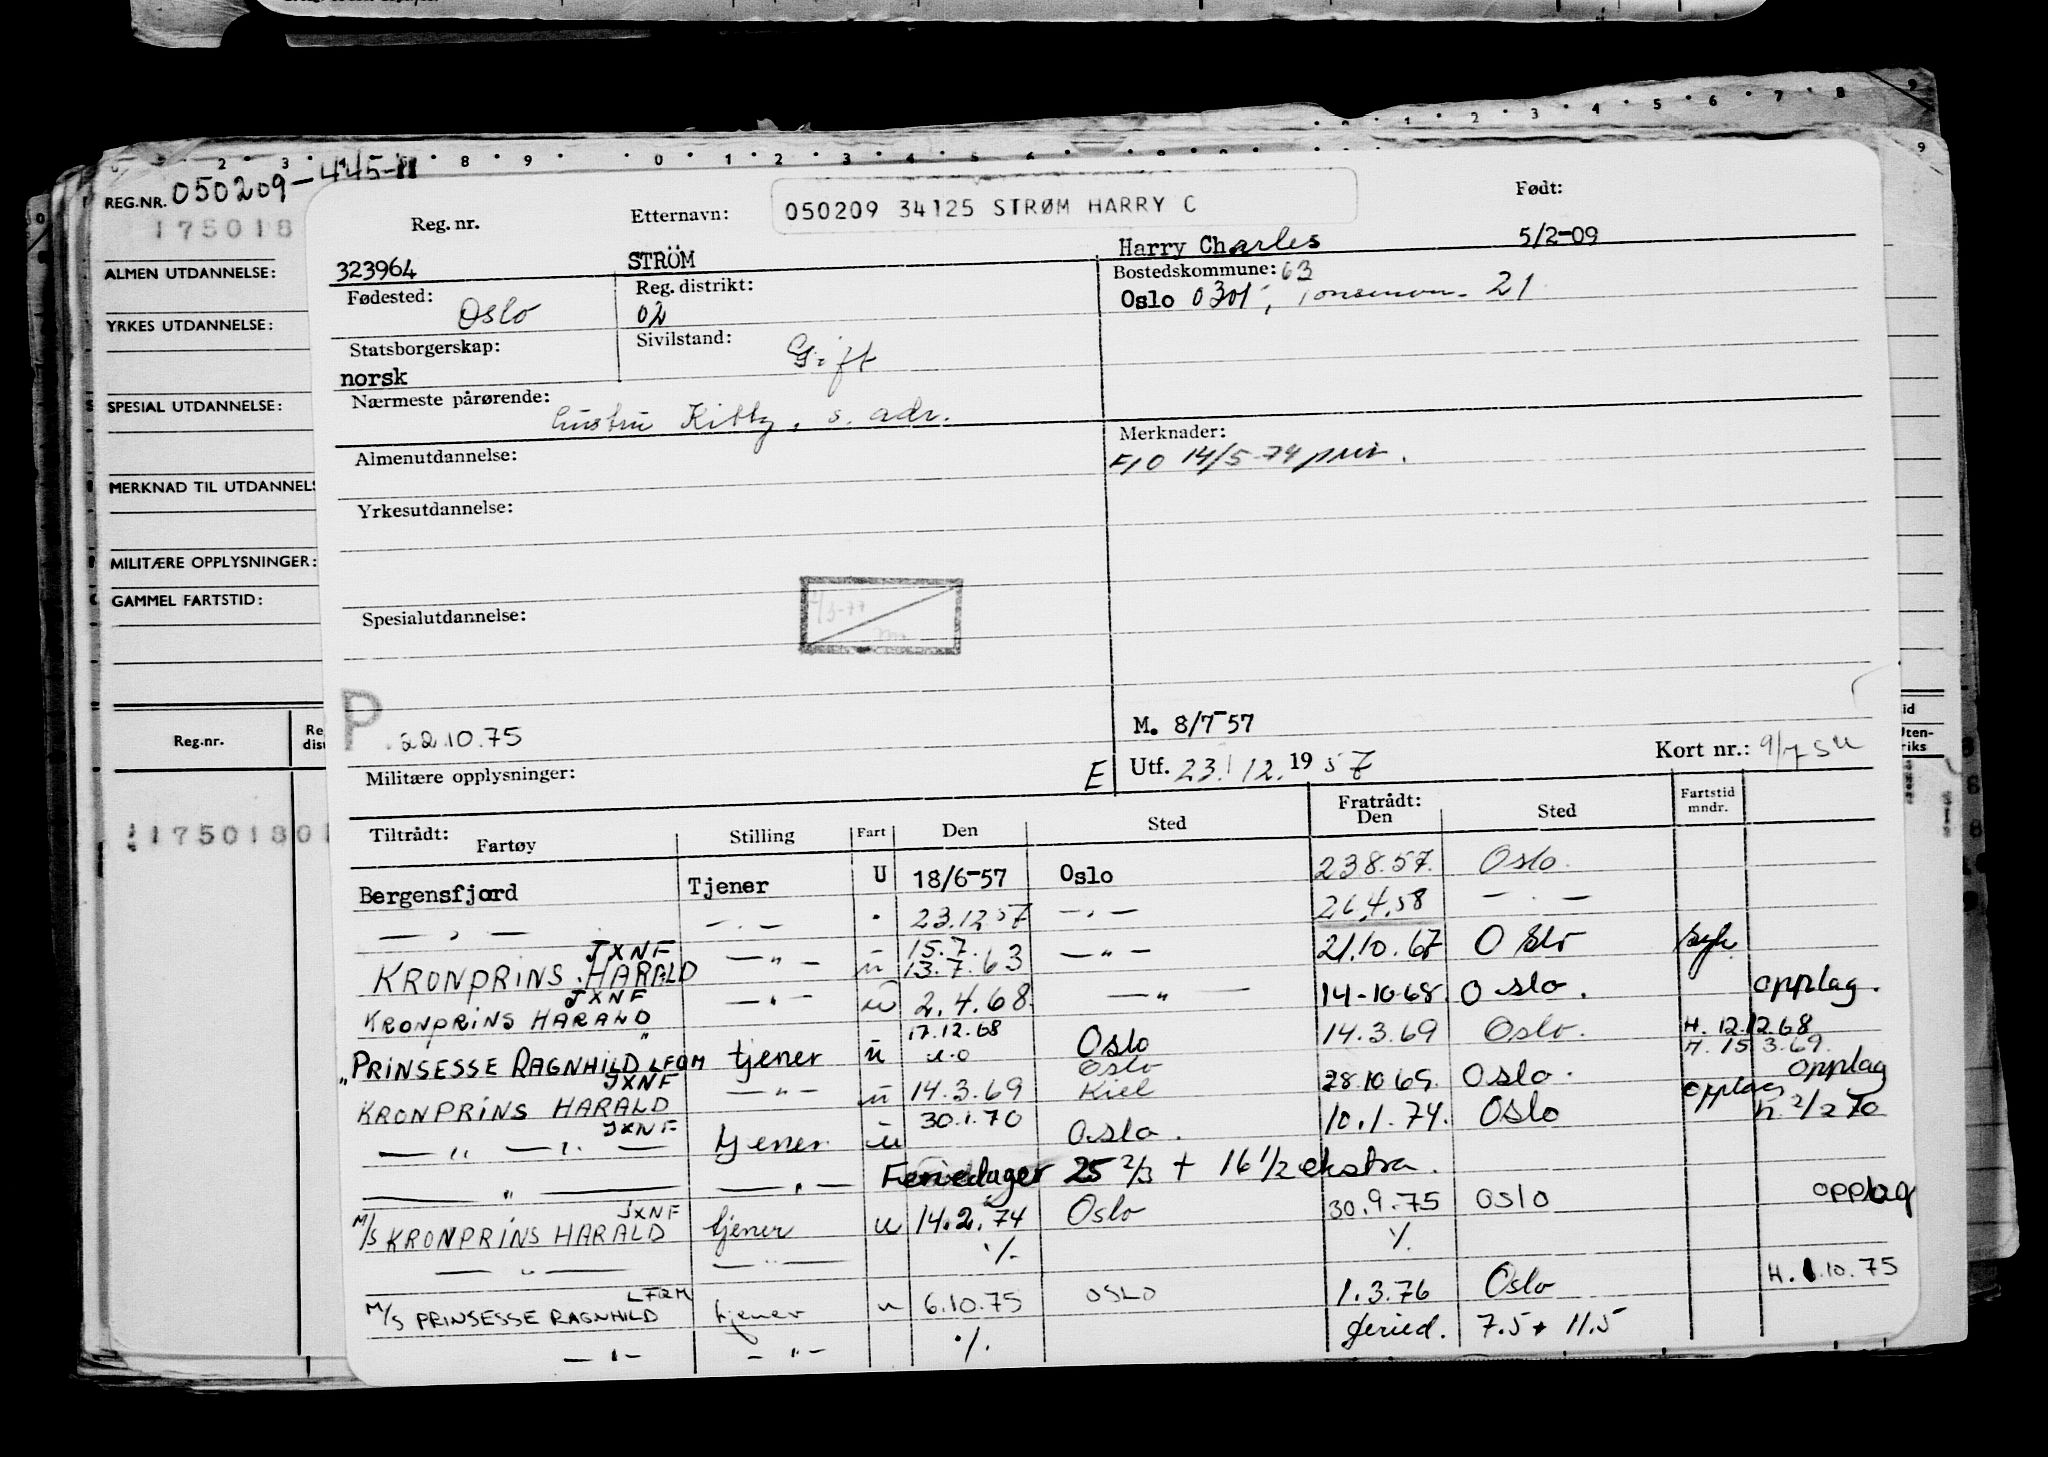 REG.NR. 050209-445-11
175018
ALMEN UTDANNELSE:
YRKES UTDANNELSE:
SPESIAL UTDANNELSE:
MERKNAD TIL UTDANNELS
MILITÆRE OPPLYSNINGER:
GAMMEL FARTSTID:
Reg.nr.
1750180
Reg. nr. Etternavn: 050209 34125 STRØM HARRY C Født:
323964 STRÖM Harry Charles 5/2-09
Fødested: Oslo Reg. distrikt: 02 Bostedskommune: 63
Oslo 0301, 21
Statsborgerskap: norsk Sivilstand: Gift
Nærmeste pårørende: hustru Kitty, s. adr.
Almenutdannelse: Merknader:
F10 14/5-74
Yrkesutdannelse:
Spesialutdannelse:
P 22.10.75 M. 8/7-57
Militære opplysninger: E Utf. 23/12. 1957 Kort nr.:
Tiltrådt: Fartøy Stilling Fart Den Sted Fratrådt: Den Sted Fartstid mndr.
Bergensfjord Tjener U 18/6-57 Oslo 23.8.57. Oslo.
— " — - " - " 23.12.57 — " — 26.4.58 — " —
JXNF 15.7.
KRONPRINS HARALD — " — u 13.7.63 — " — 21.10.67 Oslo syk.
JXNF
KRONPRINS HARALD — " — u 2.4.68. — " — 14-10-68. Oslo. opplag.
" 17.12.68 H. 12.12.68
"PRINSESSE RAGNHILD LFQM tjener u Oslo 14.3.69 Oslo. H. 15.3.69.
JXNF Oslo opplag
KRONPRINS HARALD — " — u 14.3.69 Kiel 28.10.69. Oslo. opplag
JXNF 30.1.70
— " — " — tjener u Oslo. 10.1.74. Oslo h. 2/2 70
— " — — " — Feriedager 25 2/3 + 16 1/2 ekstra.
JXNF opplag
M/S KRONPRINS HARALD tjener u 14.2.74 Oslo 30.9.75 OSLO
— " — — " — %. %.
LFQM H. 1.10.75
M/S PRINSESSE RAGNHILD tjener u 6.10.75 OSLO 1.3.76 Oslo
— " — — " — %. feried. 7.5 + 11.5